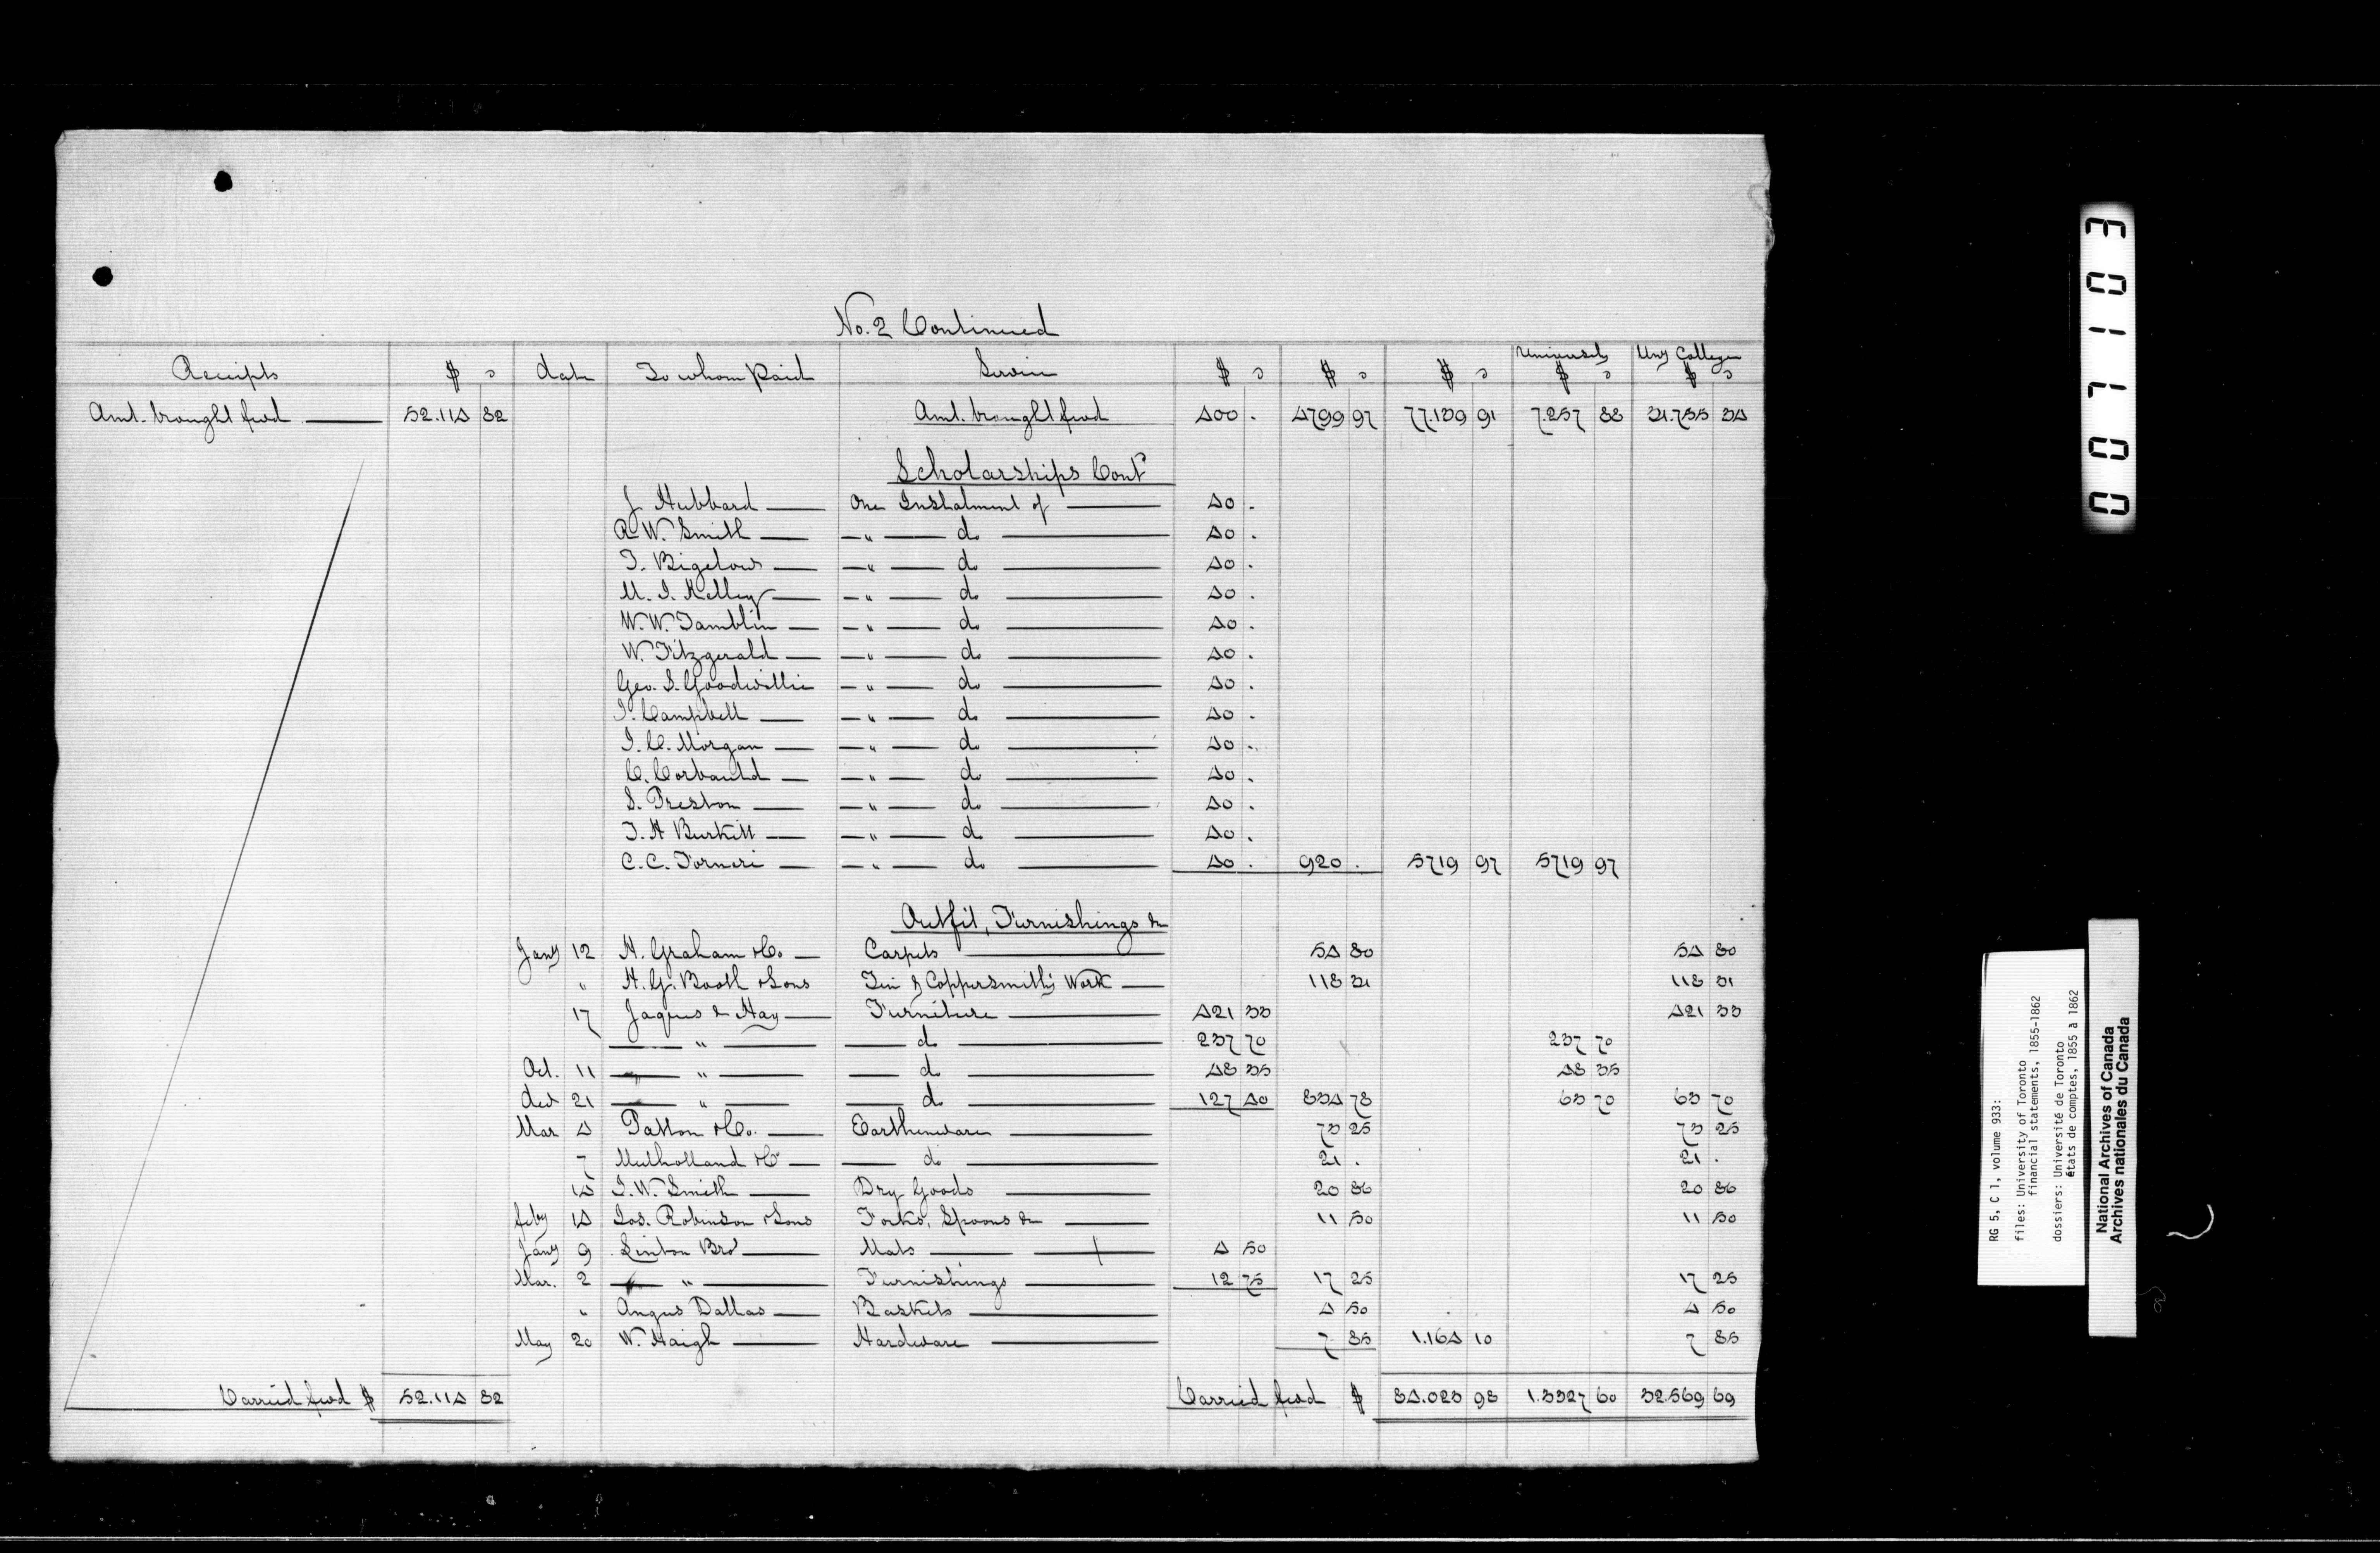 No. 2 Continued
Receipts $ c date To whom paid Service $ c $ c $ c University $ c Uny College $ c
Amt. brought fwd 52.114 82 Amt. brought fwd 400 . 4799 97 77.139 91 7.257 88 31.755 34
Scholarships Cont^d
J. Hubbard One Instalment of 40 .
R W. Smith " do 40 .
T. Bigelow " do 40 .
M. J. Kelley " do 40 .
W. W. Tamblin " do 40 .
W. Fitzgerald " do 40 .
Geo. S. Goodwillie " do 40 .
J. Campbell " do 40 .
J. C. Morgan " do 40 .
C. Corbauld " do 40 .
S. Preston " do 40 .
T. H Burkitt " do 40 .
C. C. Forneri " do 40 . 920 . 5719 97 5719 97
Outfit, Furnishings &c
Jany 12 H. Graham & Co. Carpets 54 80 54 80
" H. G. Booth & Sons Tin & Coppersmith's Work 118 31 118 31
17 Jaques & Hay Furniture 421 33 421 33
" do 237 70 237 70
Oct. 11 " do 48 35 48 35
Dec 21 " do 127 40 834 78 63 70 63 70
Mar 4 Patton & Co. Earthenware 73 25 73 25
7 Mulholland & Co do 21 . 21 .
14 J. W. Smith Dry Goods 20 86 20 86
feby 14 Jos. Robinson & Sons Forks, Spoons &c 11 50 11 50
Jany 9 Linton Bro^s Mats 4 50
Mar. 2 " Furnishings 12 75 17 25 17 25
" Angus Dallas Baskets 4 50 4 50
May 20 W. Haigh Hardware 7 85 1.164 10 7 85
Carried fwd $ 52.114 82 Carried fwd $ 84.023 98 1.3327 60 32.569 69
007103
RG 5, C 1, volume 933:
files: University of Toronto
financial statements, 1855-1862
dossiers: Université de Toronto
états de comptes, 1855 à 1862
National Archives of Canada
Archives nationales du Canada